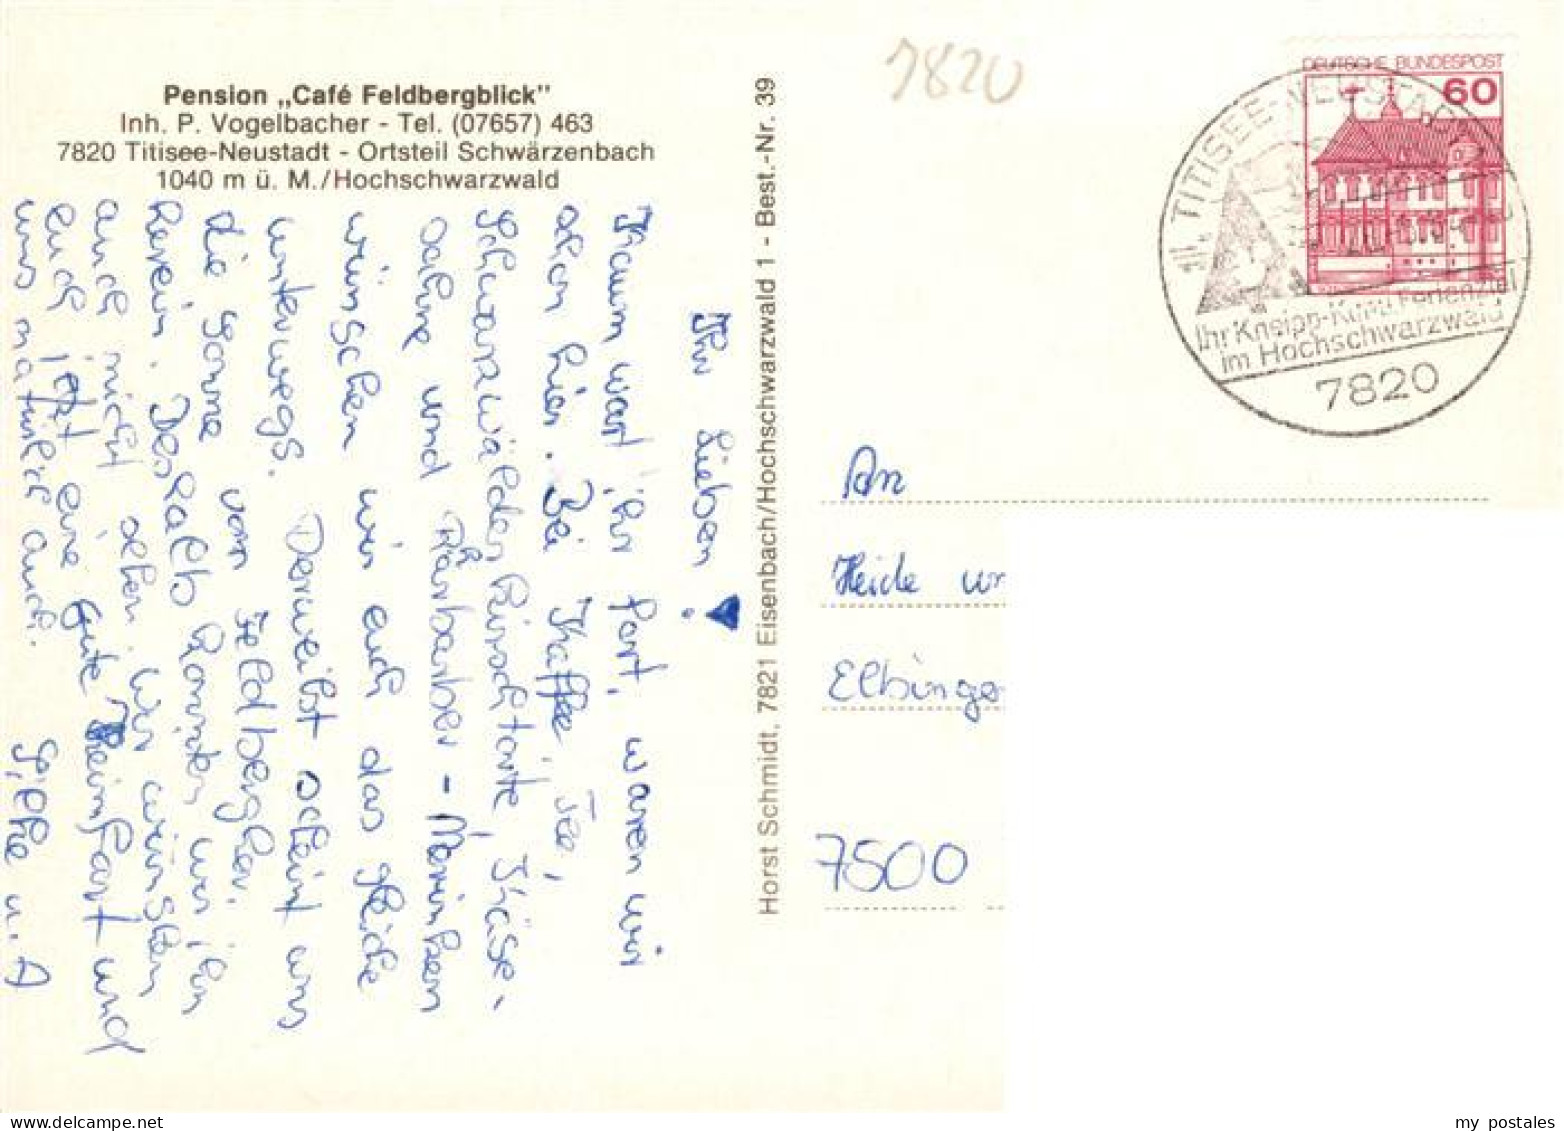 Pension „Café Feldbergblick"
Inh. P. Vogelbacher - Tel. (07657) 463
7820 Titisee-Neustadt - Ortsteil Schwärzenbach
1040 m ü. M./Hochschwarzwald
Ihr Lieben!
Kaum wart ihr fort, waren wir
schon hier. Bei Kaffee, Tee,
Schwarzwälderkirschtorte, Käse-
sahne und Rharbarber-Merinken
wünschen wir euch das gleiche
unterwegs. Derweilst scheint uns
die Sonne vom Feldberg her
herein. Deshalb konnten wir ihn
auch nicht sehen. Wir wünschen
euch jetzt eine gute Heimfart und
uns natürlich auch.
S, Elke u. A
Horst Schmidt, 7821 Eisenbach/Hochschwarzwald 1 - Best.-Nr. 39
7820
DEUTSCHE BUNDESPOST
60
TITISEE-NEUSTADT
Ihr Kneipp-Kuru.Ferienziel
im Hochschwarzwald
7820
An
Heide
Elbinger
7500
my postales